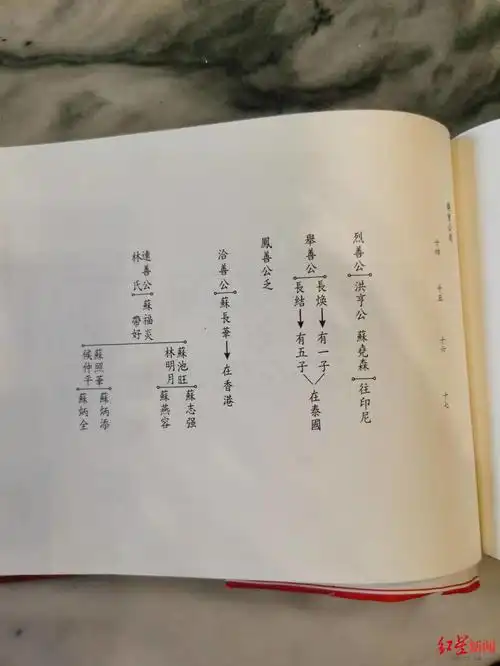 十四
十五
十六
十七
烈善公 洪亨公 蘇堯森 往印尼
舉善公 長煥 有一子
長結 有五子
在泰國
鳳善公乏
洽善公 蘇長華 在香港
達善公 蘇福炎
林氏 帶好
蘇池旺 蘇志强
林明月 蘇燕容
蘇照華 蘇炳添
候仲平 蘇炳全
红星新闻